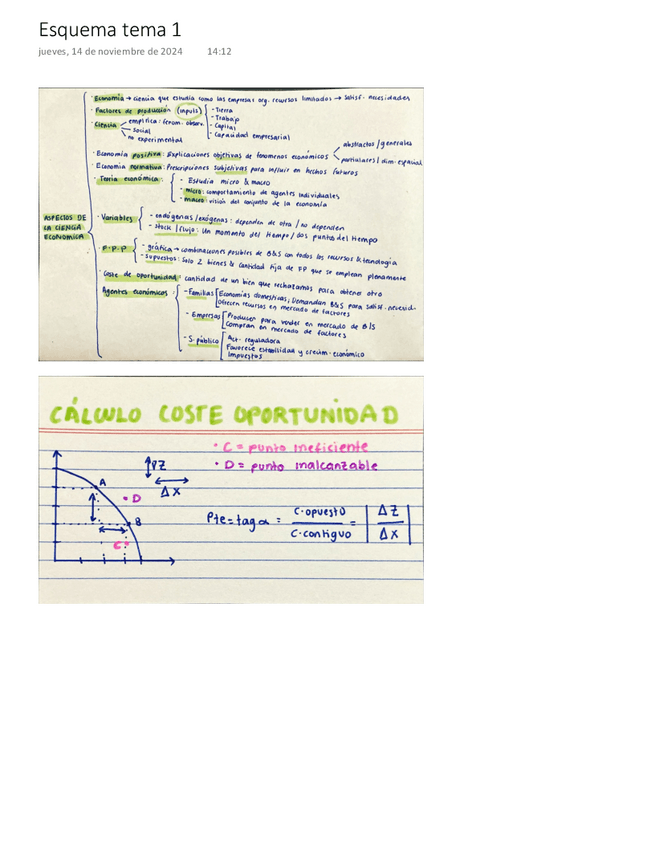 Esquema tema 1
jueves, 14 de noviembre de 2024 14:12
ASPECTOS DE LA CIENCIA ECONOMICA
· Economía → ciencia que estudia como las empresas org. recursos limitados → satisf. necesidades
· Factores de producción (inputs)
- Tierra
- Trabajo
- Capital
- Capacidad empresarial
· Ciencia
empírica: fenom. observ.
social
no experimental
· Economía positiva: Explicaciones objetivas de fenomenos económicos
abstractos / generales
partiulares / dim. espacial
· Economia normativa: Prescripciones subjetivas para influir en hechos futuros
· Teoria económica:
- Estudia micro & macro
- micro: comportamiento de agentes individuales
- macro: visión del conjunto de la economía
· Variables
- endógenas/exógenas: dependen de otra / no dependen
- stock / flujo: Un momento del tiempo / dos puntos del tiempo
· F.P.P
- gráfica → combinaciones posibles de B&S con todos los recursos & tecnologia
- supuestos: solo 2 bienes & cantidad fija de FP que se emplean plenamente
· Coste de oportunidad: cantidad de un bien que rechazamos para obtener otro
Agentes económicos:
- Familias
Economías domesticas; Demandan B&S para satisf. necesid.
ofrecen recursos en mercado de factores
- Empresas
Producen para vender en mercado de B&S
Compran en mercado de factores
- S. público
Act. reguladora
Favorece estabilidad y crecim. económico
Impuestos
CÁLCULO COSTE OPORTUNIDAD
· C = punto ineficiente
· D = punto inalcanzable
A
· D
B
C·
∇Z
Δ X
Pte = tag α = C. opuesto / C. contiguo = | ΔZ / ΔX |